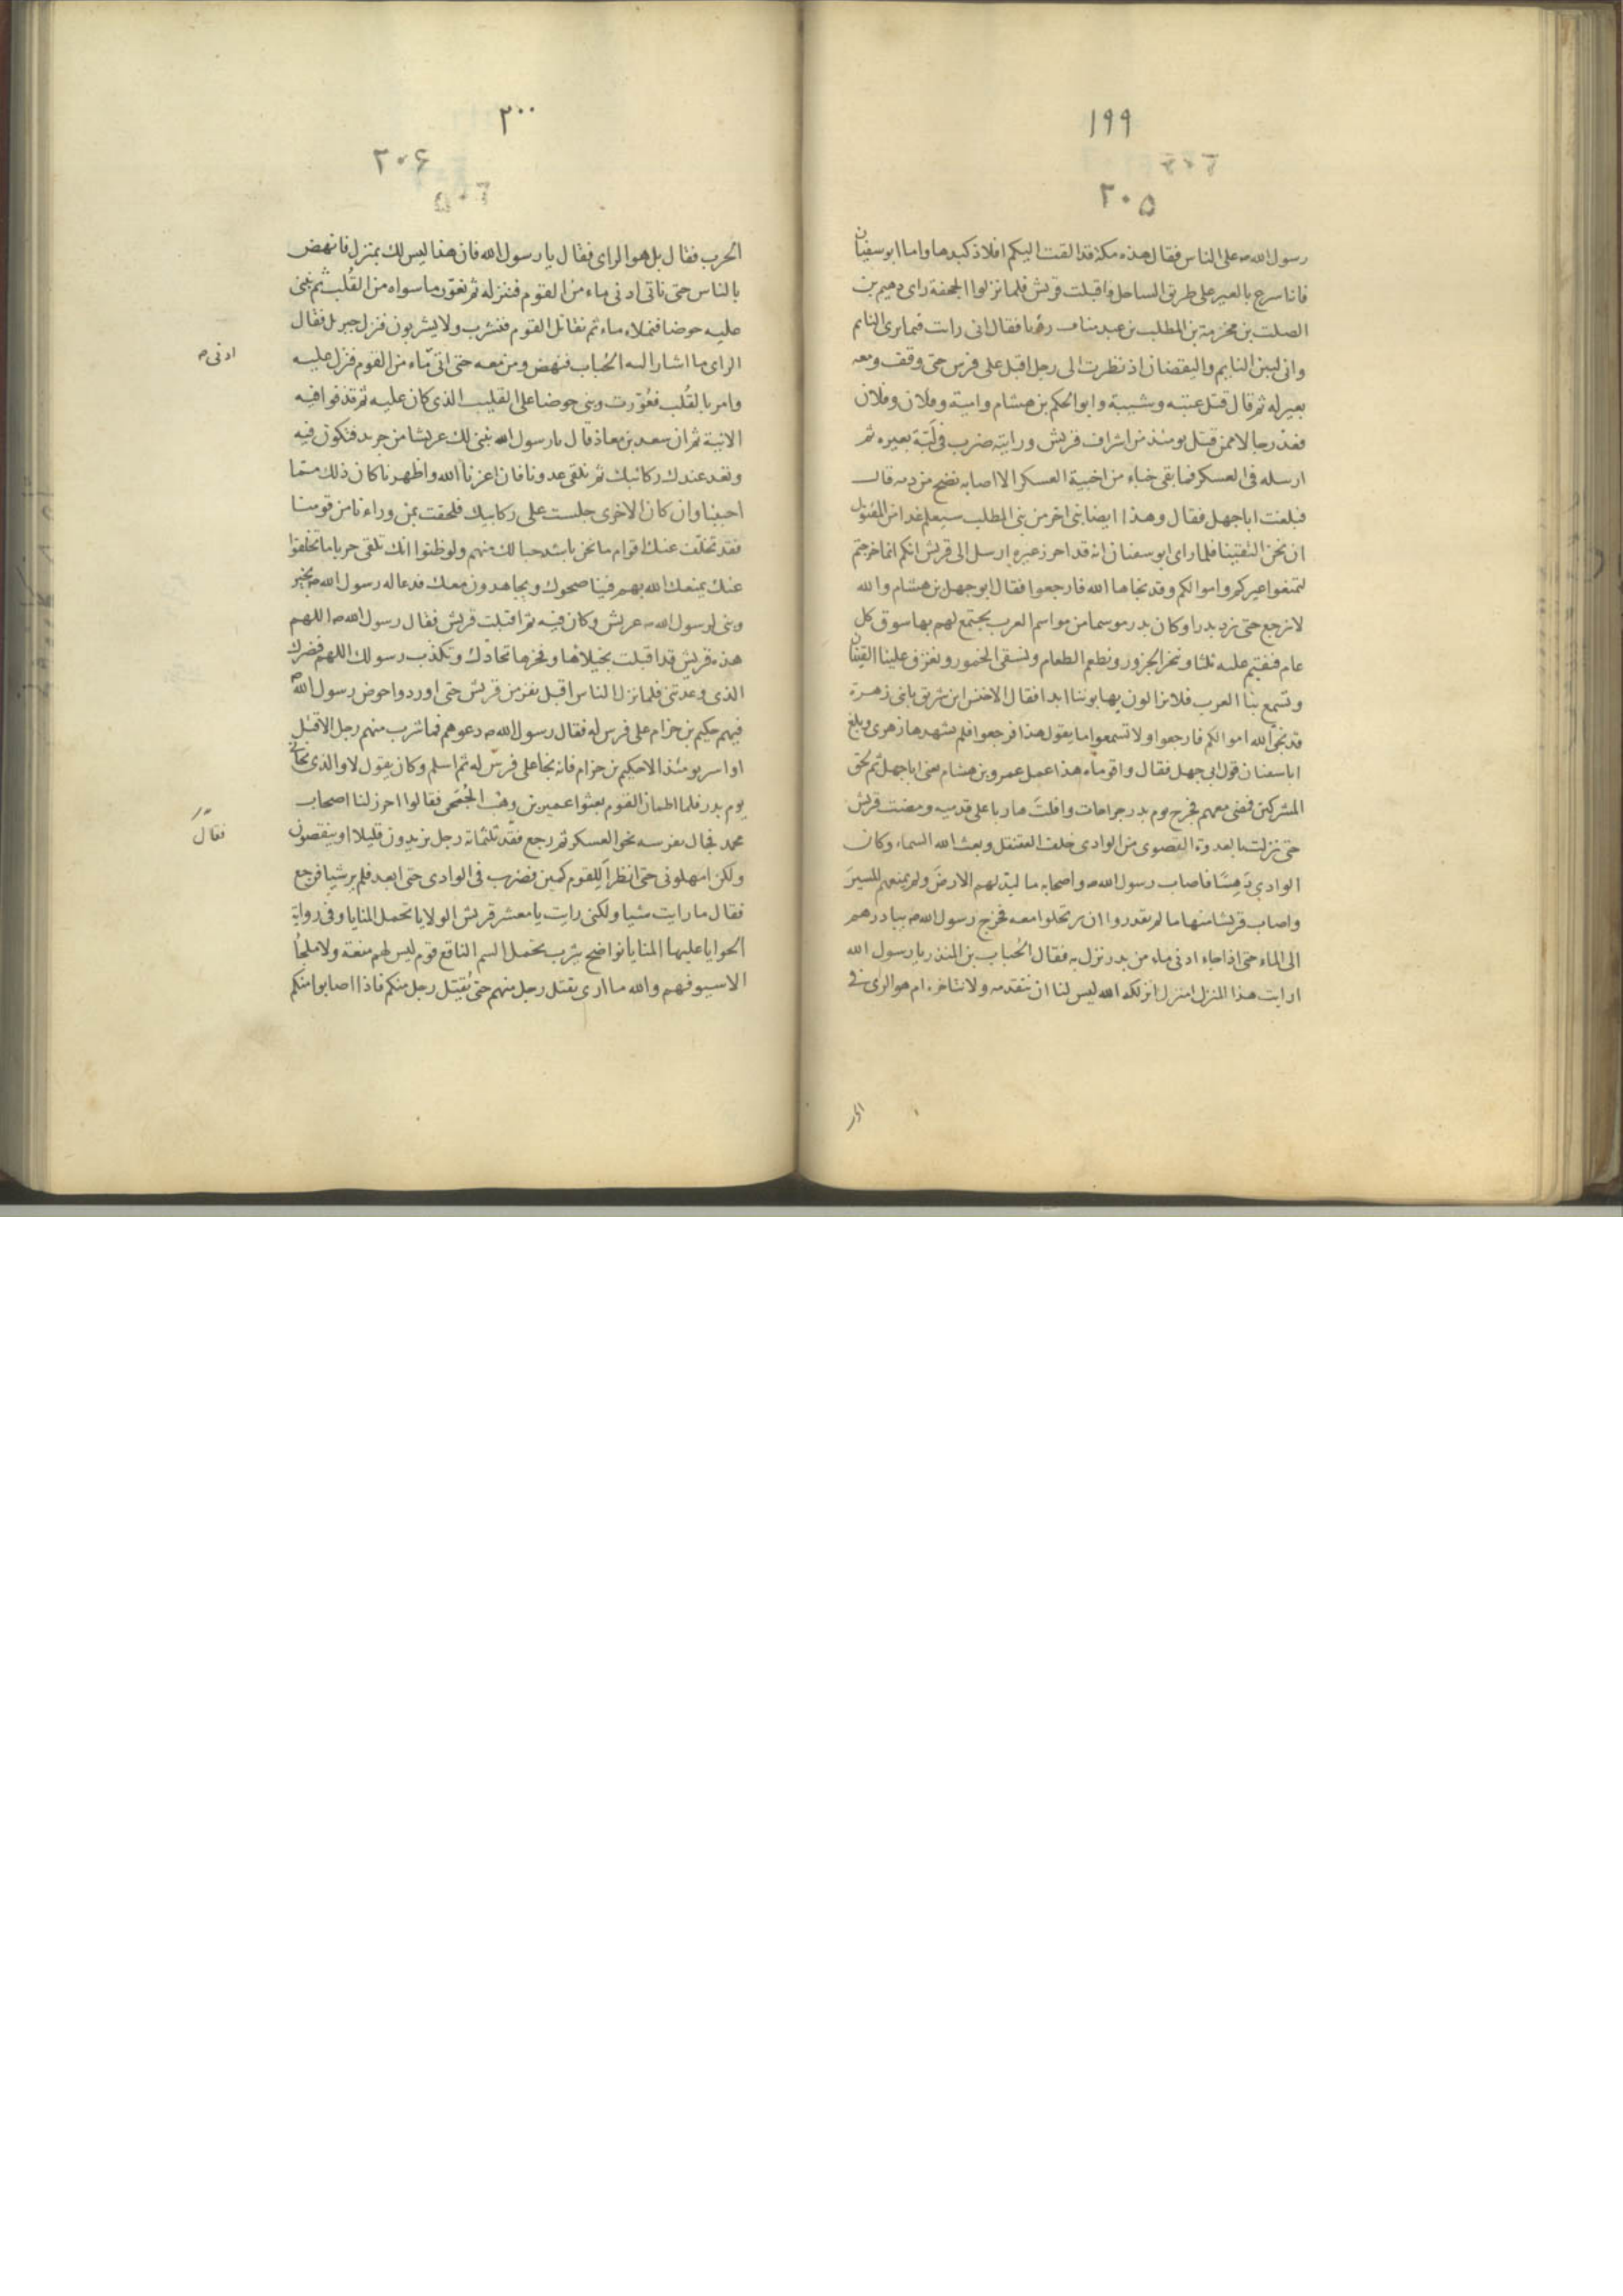 ١٩٩
٢٠٥
رسول الله ص على الناس فقال هذه مكة قد القت اليكم افلاذ كبدها واما ابو سفيان
فاناسرح بالعير على طريق الساحل واقبلت قريش فلما نزلوا الجحفة راى جهيم بن
الصلت بن مخرمة بن المطلب بن عبد مناف رؤيا فقال انى رايت فيما يرى النايم
وانى لبين النايم واليقضان اذ نظرت الى رجل اقبل على فرس حتى وقف ومعه
بعير له ثم قال قتل عتبه وشيبة وابو الحكم بن هشام وامية وفلان وفلان
فعد رجالا ممن قتل يومئذ من اشراف قريش ورايته ضرب فى لَبّة بعيره ثم
ارسله فى العسكر فما بقى خباء من اخبية العسكر الا اصابه نضح من دمه قال
فبلغت اباجهل فقال وهذا ايضا نبى اخر من بنى المطلب سيعلم غدا من المقتول
ان نحن التقينا فلما راى ابو سفيان انه قد احرز عيره ارسل الى قريش انكم انما خرجتم
لتمنعوا عيركم واموالكم وقد نجاها الله فارجعوا فقال ابو جهل بن هشام والله
لا نرجع حتى نرد بدرا وكان بدر موسما من مواسم العرب يجتمع لهم بها سوق كل
عام فنقيم عليه ثلثا وننحر الجزور ونطعم الطعام ونسقى الخمور وتعزف علينا القينان
وتسمع بنا العرب فلا يزالون يهابوننا ابدا فقال الاخنس ابن شريق يا بنى زهرة
قد نجّى الله اموالكم فارجعوا ولا تسمعوا ما يقول هذا فرجعوا فلم يشهدها زهرى وبلغ
ابا سفيان قول ابى جهل فقال واقوماه هذا عمل عمرو بن هشام يعنى اباجهل ثم لحق
المشركين فمضى معهم فجرح يوم بدر جراحات وافلت هاربا على قدميه ومضت قريش
حتى نزلت بالعدوة القصوى من الوادى خلف العقنقل وبعث الله السماء وكان
الوادى دَهِسًا فاصاب رسول الله ص واصحابه ما لبّد لهم الارض ولم يمنعهم المسير
واصاب قريشا منها ما لم يقدروا ان يرتحلوا معه فخرج رسول الله ص يبادرهم
الى الماء حتى اذا جاء ادنى ماء من بدر نزل به فقال الحُباب بن المنذر يا رسول الله
ارايت هذا المنزل امنزل انزلكه الله ليس لنا ان نتقدمه ولا نتاخره ام هو الرى فى
٢٠٠
٢٠۶
الحرب فقال بل هو الراى فقال يا رسول الله فان هذا ليس لك بمنزل فانهض
بالناس حتى ناتى ادنى ماء من القوم فننزله ثم نغوّر ما سواه من القُلب ثم نبنى
عليه حوضا فنملاءه ماء ثم نقاتل القوم فنشرب ولا يشربون فنزل جبريل فقال
الراى ما اشار اليه الحُباب فنهض ومن معه حتى اتى ماء من القوم فنزل عليه
ادنى ص
وامر بالقُلب فغُوّرت وبنى حوضا على القليب الذى كان عليه ثم قذفوا فيه
الانية ثم ان سعد بن معاذ قال يا رسول الله نبنى لك عريشا من جريد فتكون فيه
ونعد عندك ركائبك ثم نلقى عدونا فان اعزنا الله واظهرنا كان ذلك مما
احببنا وان كان الاخرى جلست على ركابيك فلحقت بمن وراءنا من قومنا
فقد تخلّف عنك اقوام ما نحن باشد حبا لك منهم ولو ظنوا انك تلقى حربا ما تخلفوا
عنك يمنعك الله بهم فيناصحوك ويجاهدون معك فدعا له رسول الله ص بخير
وبنى لرسول الله ص عريش وكان فيه ثم اقبلت قريش فقال رسول الله ص اللهم
هذه قريش قد اقبلت بخيلائها وفخرها تحادّك وتكذب رسولك اللهم فنصرك
الذى وعدتنى فلما نزل الناس اقبل نفر من قريش حتى اوردوا حوض رسول الله ص
فيهم حكيم بن حزام على فرس له فقال رسول الله ص دعوهم فما شرب منهم رجل الا قتل
او اسر يومئذ الا حكيم بن حزام فانه نجا على فرس له ثم اسلم وكان يقول لا والذى نجانى
يوم بدر فلما اطمان القوم بعثوا عمير بن وهب الجُمَحى فقالوا احرز لنا اصحاب
محمد فجال بفرسه نحو العسكر ثم رجع فقد ثلثمائة رجل يزيدون قليلا او ينقصون
فقال
ولكن امهلونى حتى انظر اللقوم كمين فضرب فى الوادى حتى ابعد فلم ير شيا فرجع
فقال ما رايت شيا ولكنى رايت يا معشر قريش الولايا تحمل المنايا وفى رواية
الحوايا عليها المنايا نواضح يثرب تحمل السم الناقع قوم ليس لهم منعة ولا ملجأ
الا سيوفهم والله ما ارى يقتل رجل منهم حتى يُقتل رجل منكم فاذا اصابوا منكم